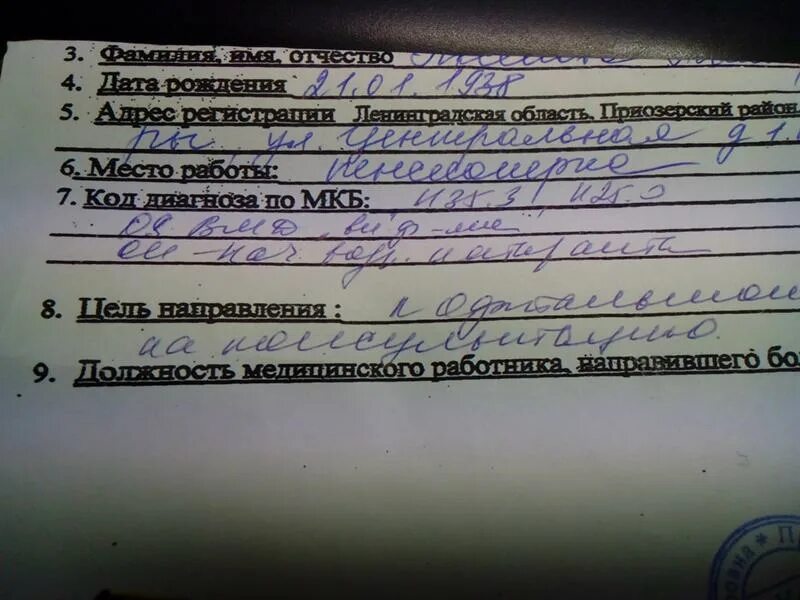 3. Фамилия, имя, отчество
4. Дата рождения 21.01.1938
5. Адрес регистрации Ленинградская область, Приозерский район,
ры ул. Центральная д 1.
6. Место работы: пенсионерка
7. Код диагноза по МКБ: H35.3, H25.0
ОД ВМД
ОИ - нач возр. катаракта
8. Цель направления : к офтальмол
на консультацию
9. Должность медицинского работника, направившего бо